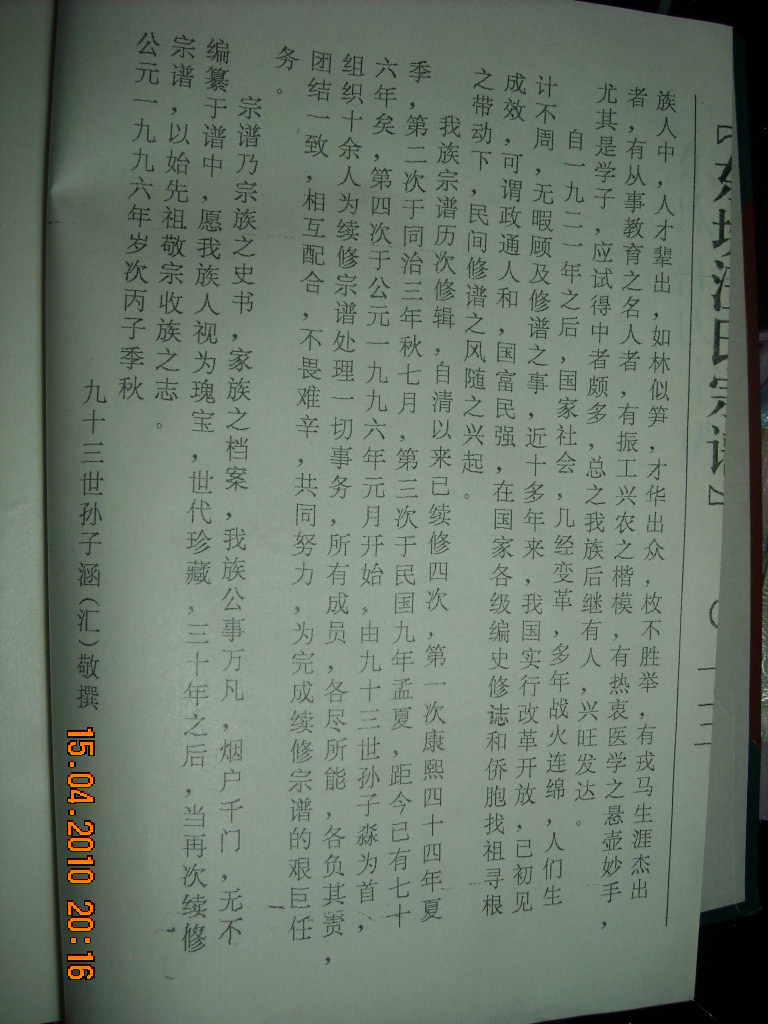 氏宗谱】
族人中，人才辈出，如林似笋，才华出众，枚不胜举，有戎马生涯杰出
者，有从事教育之名人者，有振工兴农之楷模，有热衷医学之悬壶妙手，
尤其是学子，应试得中者颇多，总之我族后继有人，兴旺发达。
自一九二一年之后，国家社会，几经变革，多年战火连绵，人们生
计不周，无暇顾及修谱之事，近十多年来，我国实行改革开放，已初见
成效，可谓政通人和，国富民强，在国家各级编史修志和侨胞找祖寻根
之带动下，民间修谱之风随之兴起。
我族宗谱历次修辑，自清以来已续修四次，第一次康熙四十四年夏
季，第二次于同治三年秋七月，第三次于民国九年孟夏，距今已有七十
六年矣，第四次于公元一九九六年元月开始，由九十三世孙子淼为首，
组织十余人为续修宗谱处理一切事务，所有成员，各尽所能，各负其责，
团结一致，相互配合，不畏难辛，共同努力，为完成续修宗谱的艰巨任
务。
宗谱乃宗族之史书，家族之档案，我族公事万凡，烟户千门，无不
编纂于谱中，愿我族人视为瑰宝，世代珍藏，三十年之后，当再次续修
宗谱，以始先祖敬宗收族之志。
公元一九九六年岁次丙子季秋
九十三世孙子涵（汇）敬撰
15.04.2010 20:16